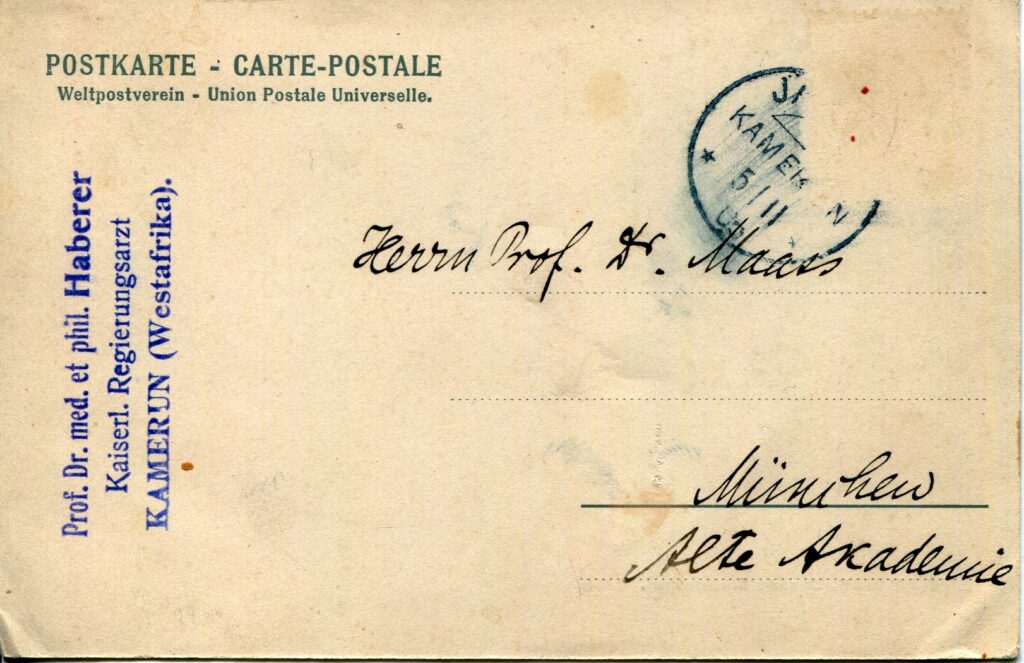 POSTKARTE - CARTE-POSTALE
Weltpostverein - Union Postale Universelle.
Prof. Dr. med. et phil. Haberer
Kaiserl. Regierungsarzt
KAMERUN (Westafrika).
KAMERUN
5/11
Herrn Prof. Dr. Maass
München
Alte Akademie